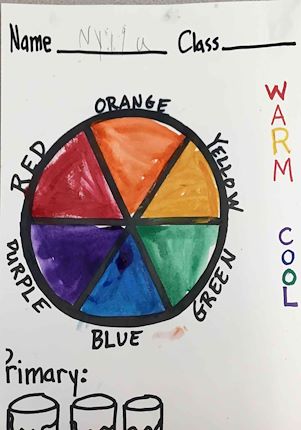 Name Class
ORANGE
RED
YELLOW
WARM
PURPLE
GREEN
COOL
BLUE
Primary: